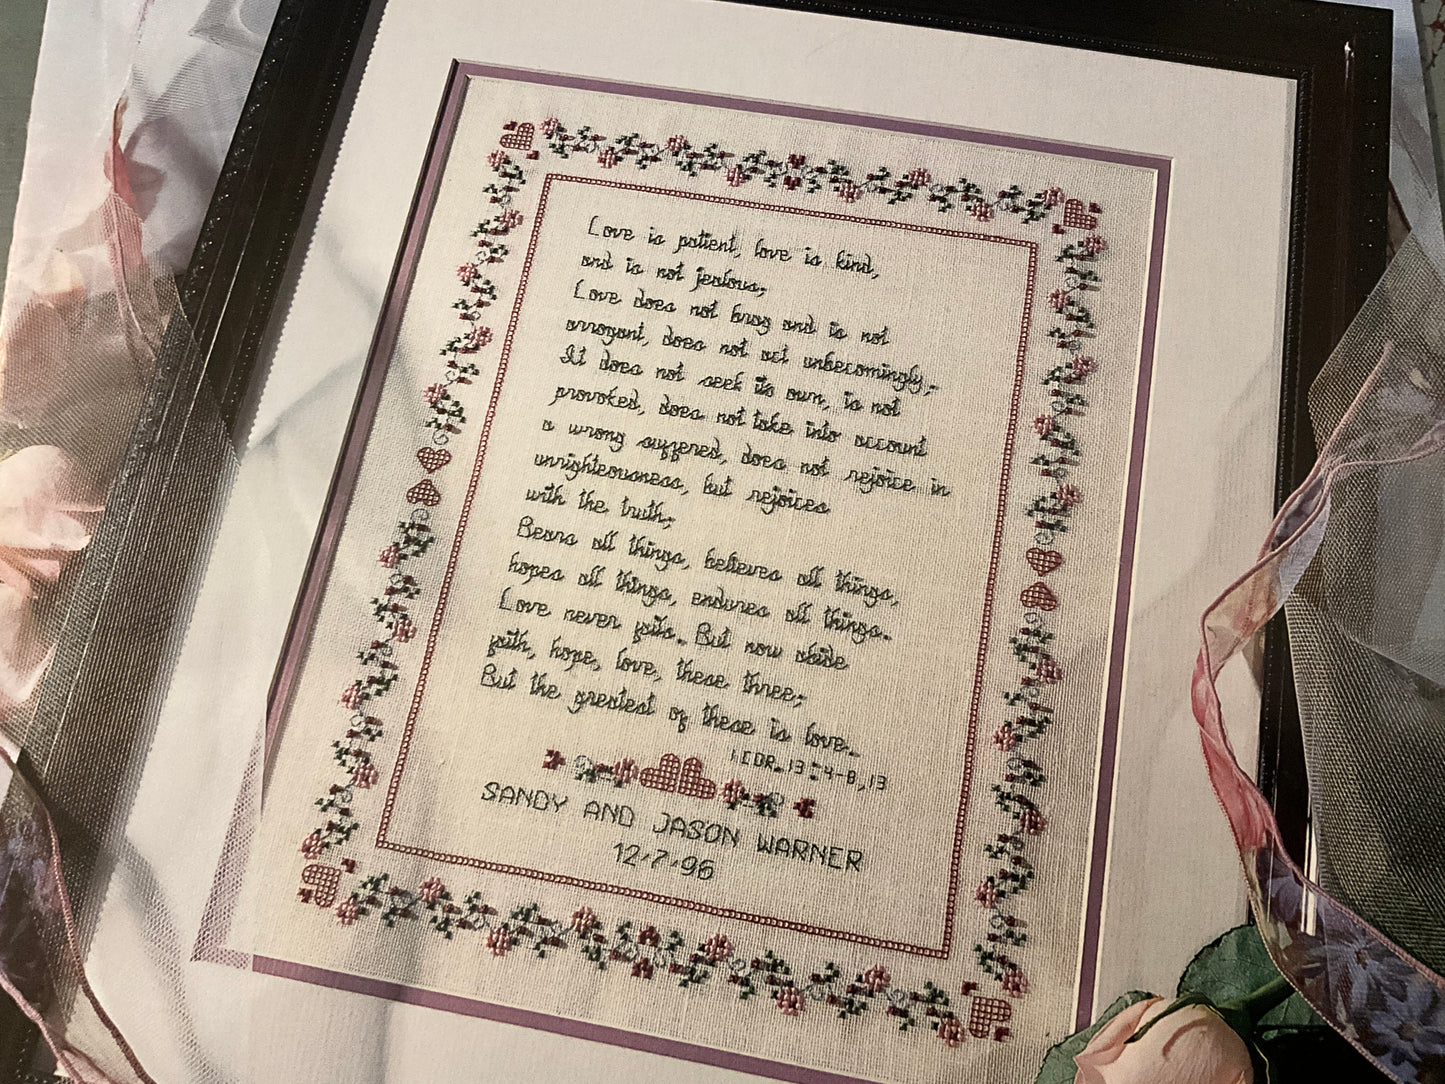 Love is patient, love is kind,
and is not jealous;
Love does not brag and is not
arrogant, does not act unbecomingly;
It does not seek its own, is not
provoked, does not take into account
a wrong suffered, does not rejoice in
unrighteousness, but rejoices
with the truth;
Bears all things, believes all things,
hopes all things, endures all things.
Love never fails. But now abide
faith, hope, love, these three;
But the greatest of these is love.
1 COR. 13:4-8,13
SANDY AND JASON WARNER
12·7·96